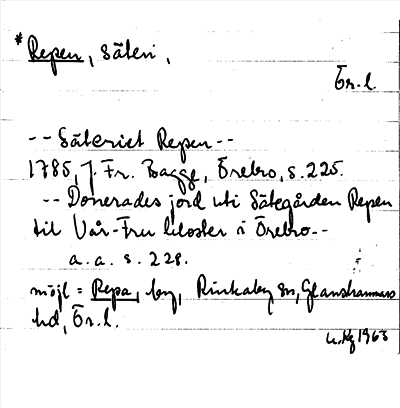 * Repen, säteri,
Ör. l.
-- Säteriet Repen --
1785, J. Fr. Bagge, Örebro, s. 225.
-- Donerades jord uti Sätegården Repen
til Vår-Fru kloster i Örebro --
a. a. s. 228.
möjl = Repa, by, Rinkaby sn, Glanshammars
hd, Ör. l.
1963